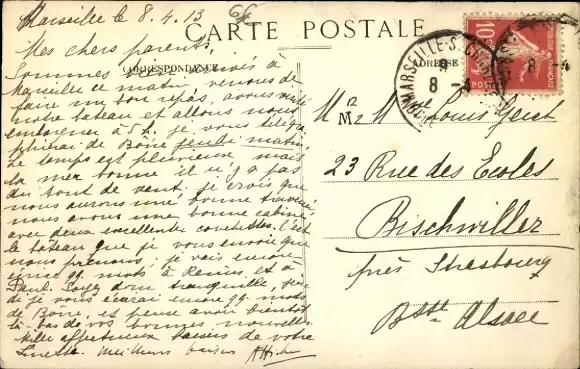 Marseille le 8.4.13
64
CARTE POSTALE
Mes chers parents,
CORRESPONDANCE
ADRESSE
Sommes arrivés à
Marseille ce matin, venons de
faire un bon repas, avons visité
notre bateau et allons nous
embarquer à 5 h. je vous télégra
phierai de Bône jeudi matin.
Le temps est pluvieux mais
la mer bonne il n'y a pas
du tout de vent. je crois que
nous aurons une bonne traversée,
nous avons une bonne cabine
avec deux excellentes couchettes. C'est
le bateau que je vous envoie que
nous prenons. je vais encore
écrire qq. mots à Reims, et à
Paul. Soyez donc tranquille, jeu-
di je vous écrirai encore qq. mots
de Bône, et pense avoir bientôt
là-bas de vos bonnes nouvelles.
Mille affectueux baisers de votre
Meilleurs baisers
MARSEILLE
8 -4
10
POSTES
Mr & Mme Louis Geist
M
23 Rue des Ecoles
Bischwiller
près Strasbourg
Bsse Alsace